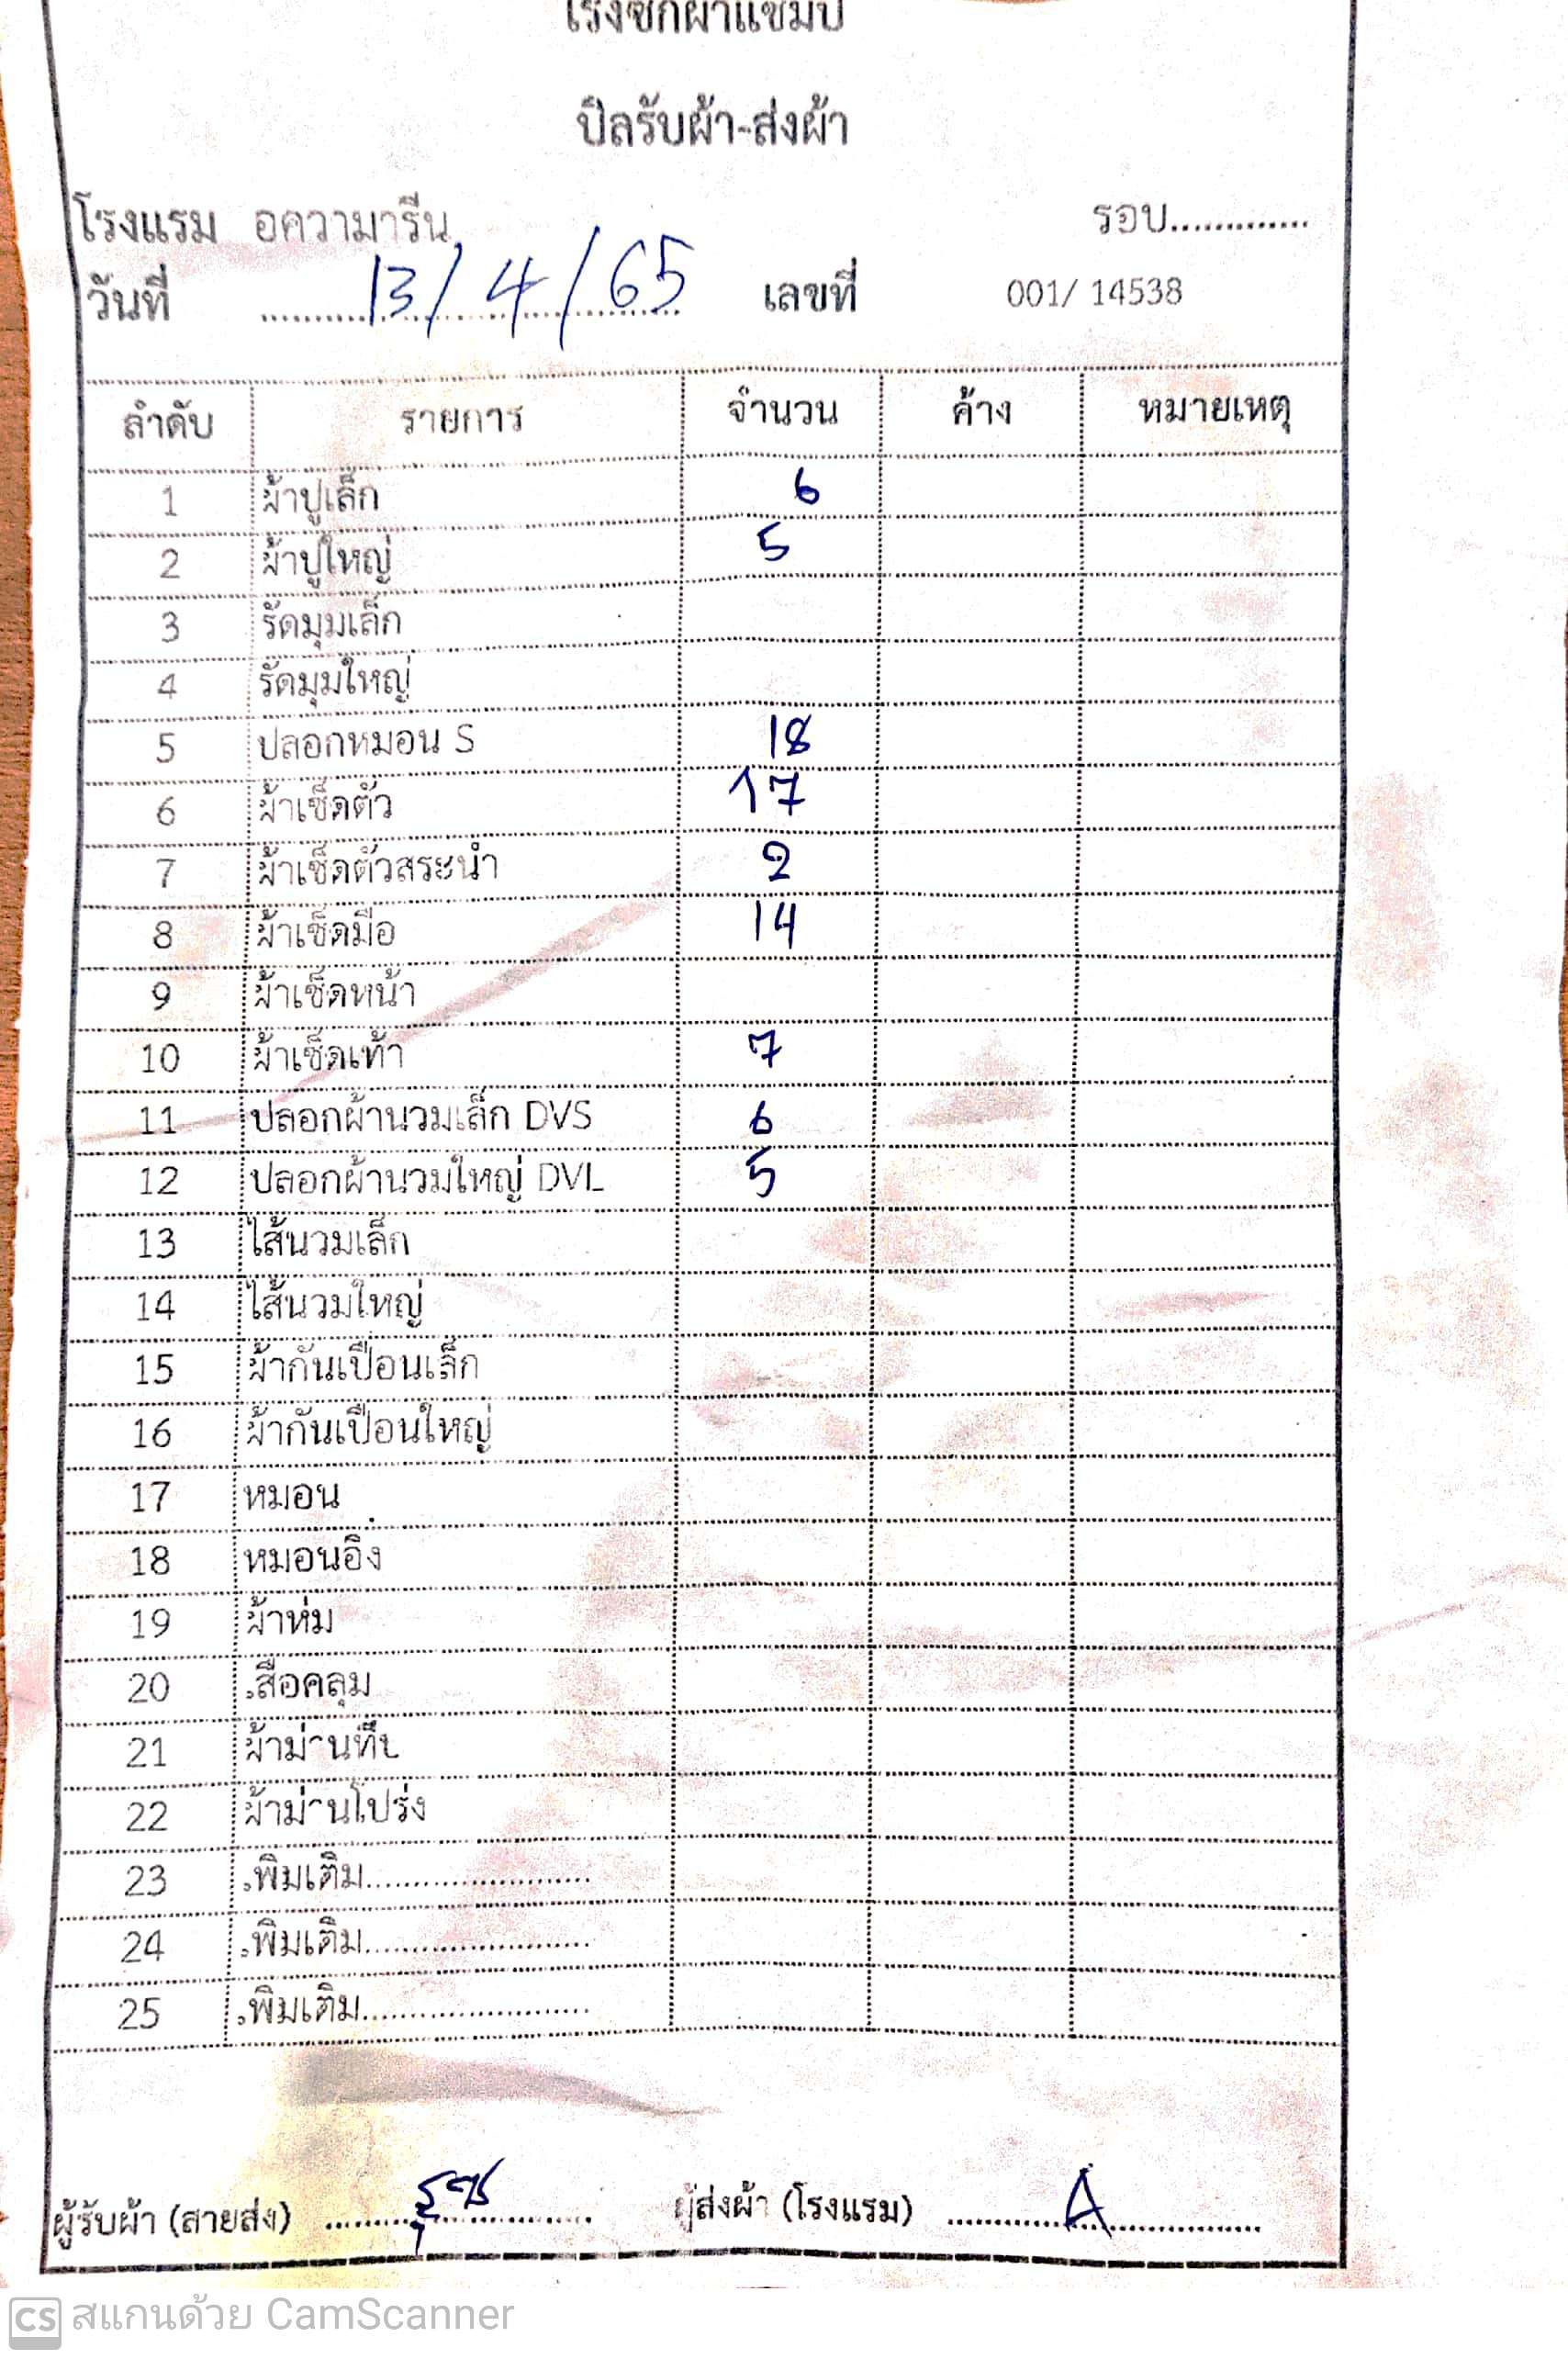 บิลรับผ้า-ส่งผ้า
โรงแรม อความารีน รอบ.............
วันที่ 13/4/65 เลขที่ 001/ 14538
ลำดับ รายการ จำนวน ค้าง หมายเหตุ
1 ผ้าปูเล็ก 6
2 ผ้าปูใหญ่ 5
3 รัดมุมเล็ก
4 รัดมุมใหญ่
5 ปลอกหมอน S 18
6 ผ้าเช็ดตัว 17
7 ผ้าเช็ดตัวสระน้ำ 2
8 ผ้าเช็ดมือ 14
9 ผ้าเช็ดหน้า
10 ผ้าเช็ดเท้า 7
11 ปลอกผ้านวมเล็ก DVS 6
12 ปลอกผ้านวมใหญ่ DVL 5
13 ไส้นวมเล็ก
14 ไส้นวมใหญ่
15 ผ้ากันเปื้อนเล็ก
16 ผ้ากันเปื้อนใหญ่
17 หมอน
18 หมอนอิง
19 ผ้าห่ม
20 เสื้อคลุม
21 ผ้าม่านทึบ
22 ผ้าม่านโปร่ง
23 เพิ่มเติม........................
24 เพิ่มเติม........................
25 เพิ่มเติม........................
ผู้รับผ้า (สายส่ง) ผู้ส่งผ้า (โรงแรม) A
CS สแกนด้วย CamScanner